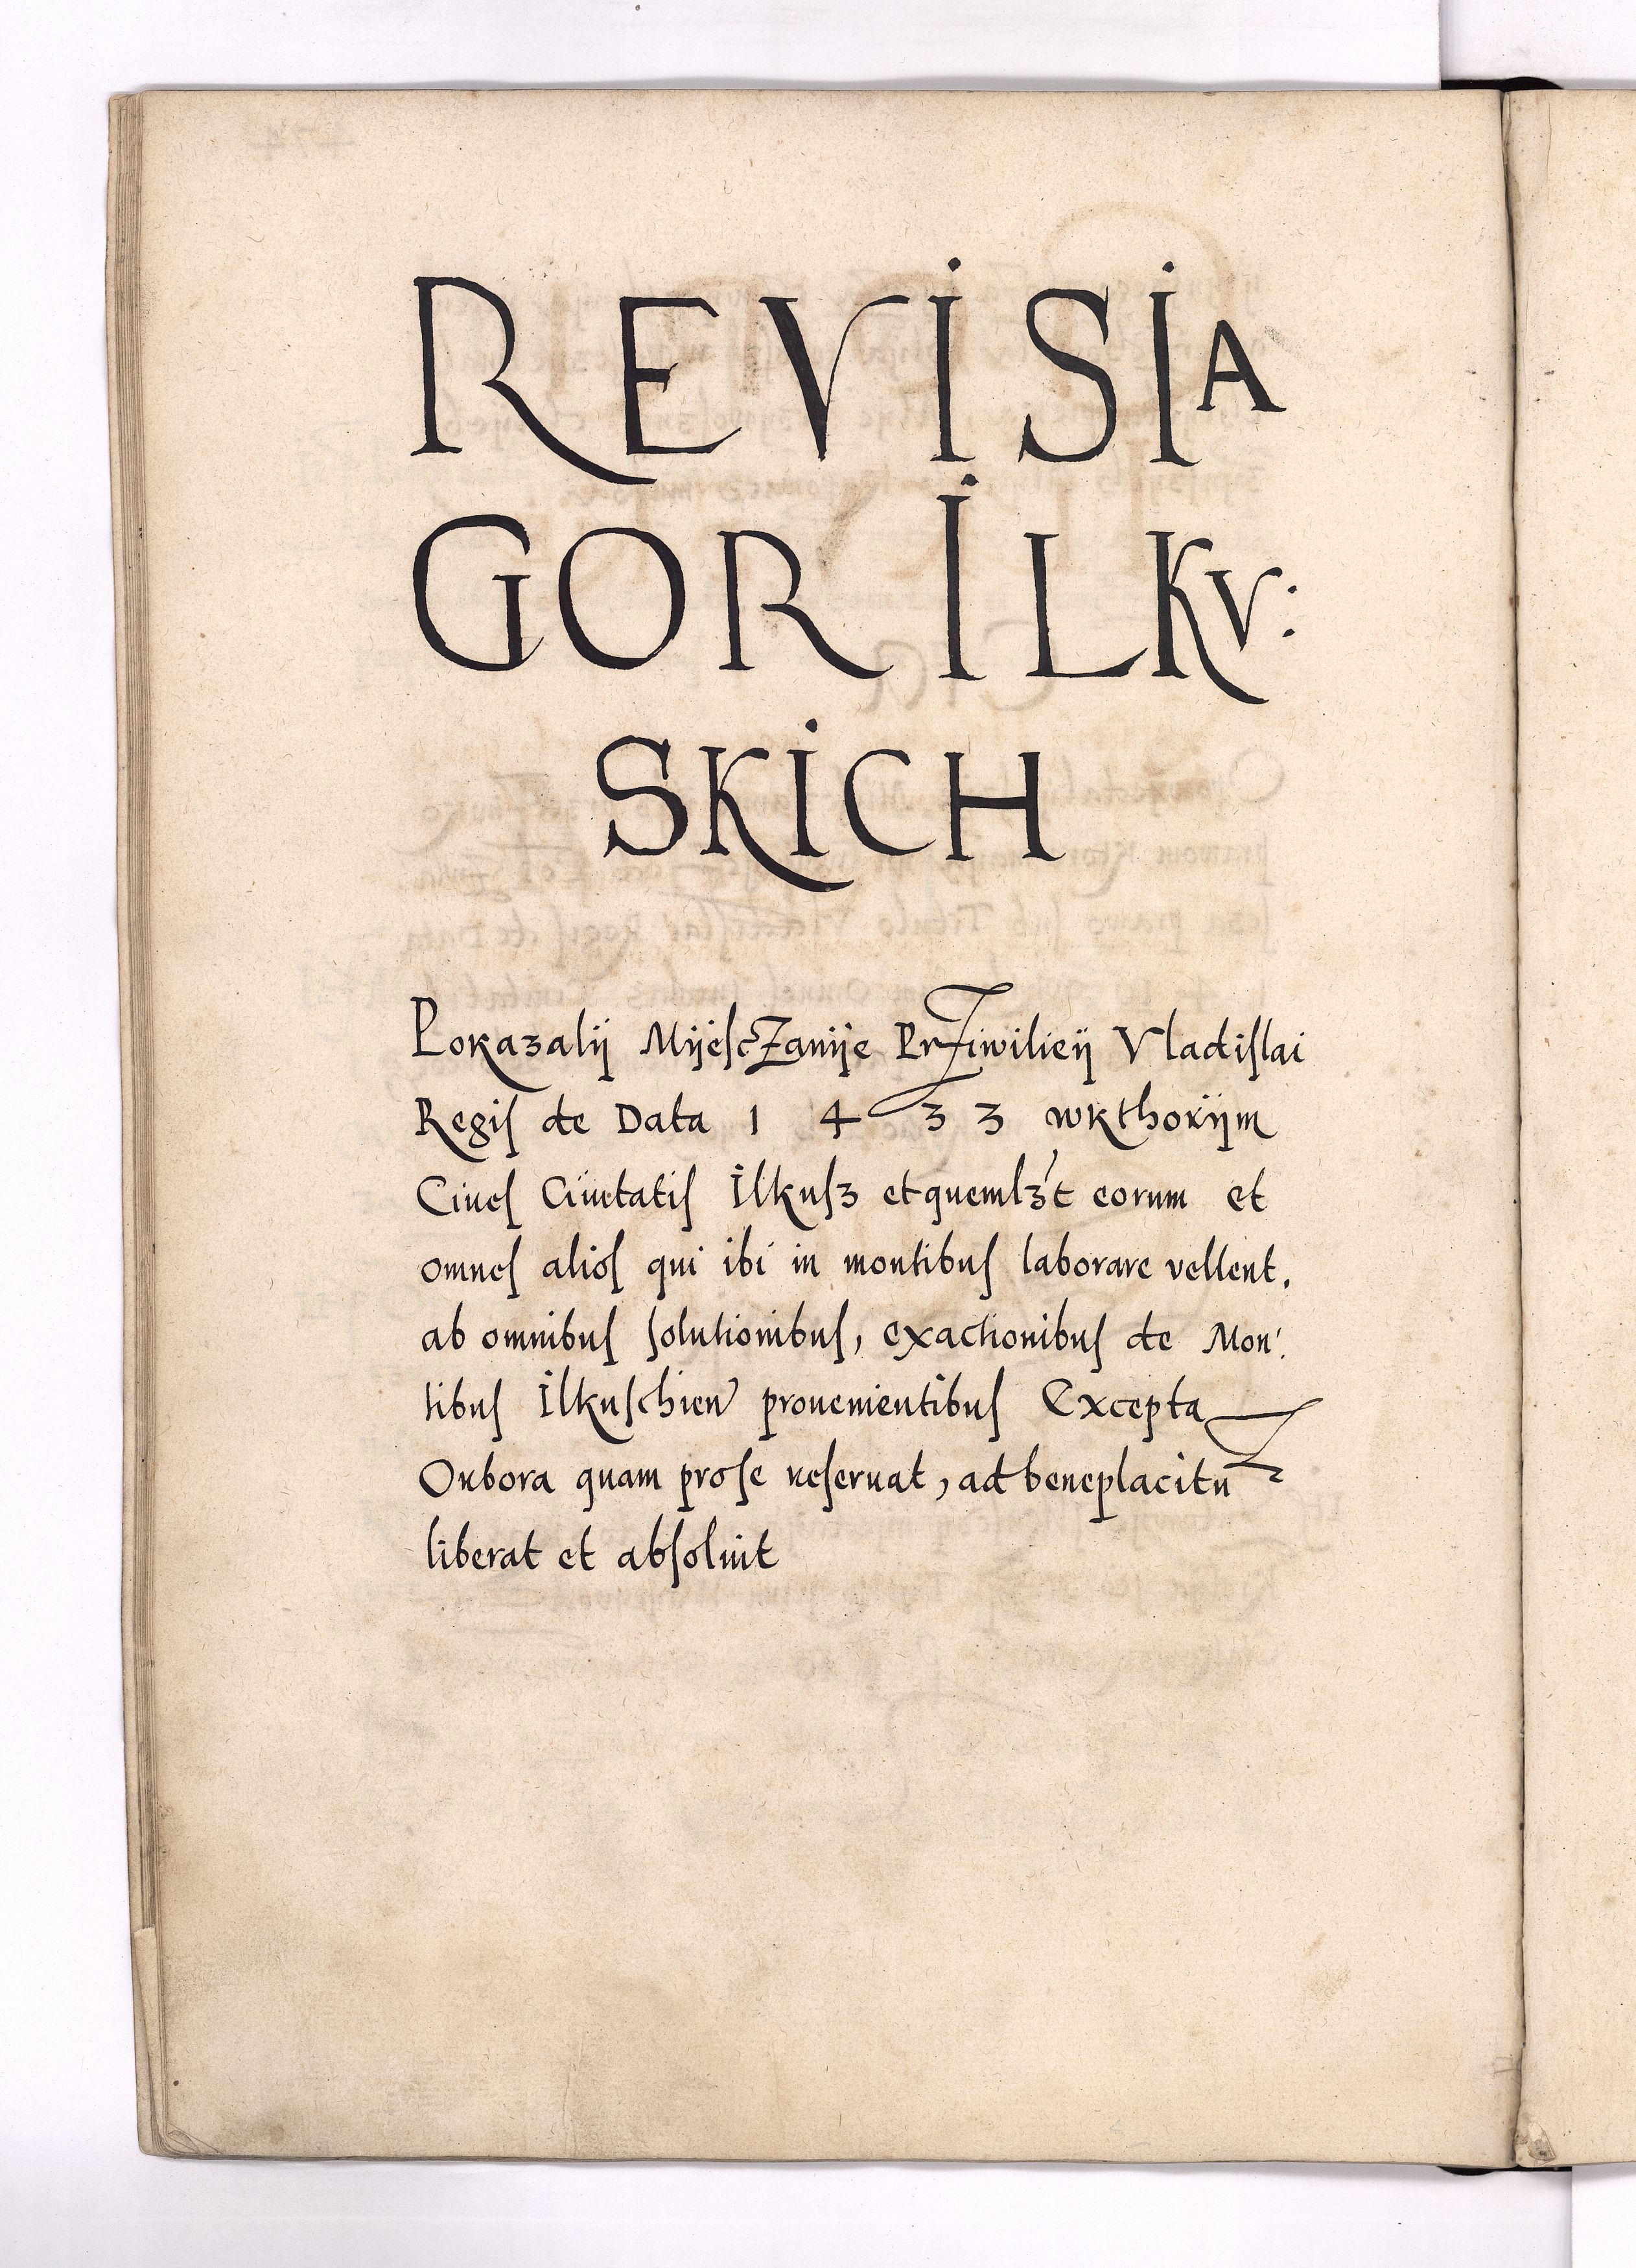 REVISIA
GOR ILKV:
SKICH
Pokazalÿ MÿesczZanÿe PrZiwilieÿ Vladislai
Regis de Data 1 4 3 3 wkthorÿm
Ciues Ciuitatis Ilkusz et quemlzt eorum et
omnes alios qui ibi in montibus laborare vellent.
ab omnibus solutionibus, exactionibus de Mon:
tibus Ilkuschien prouenientibus Excepta
Onbora quam pro se reseruat, ad beneplacitu
liberat et absoluit